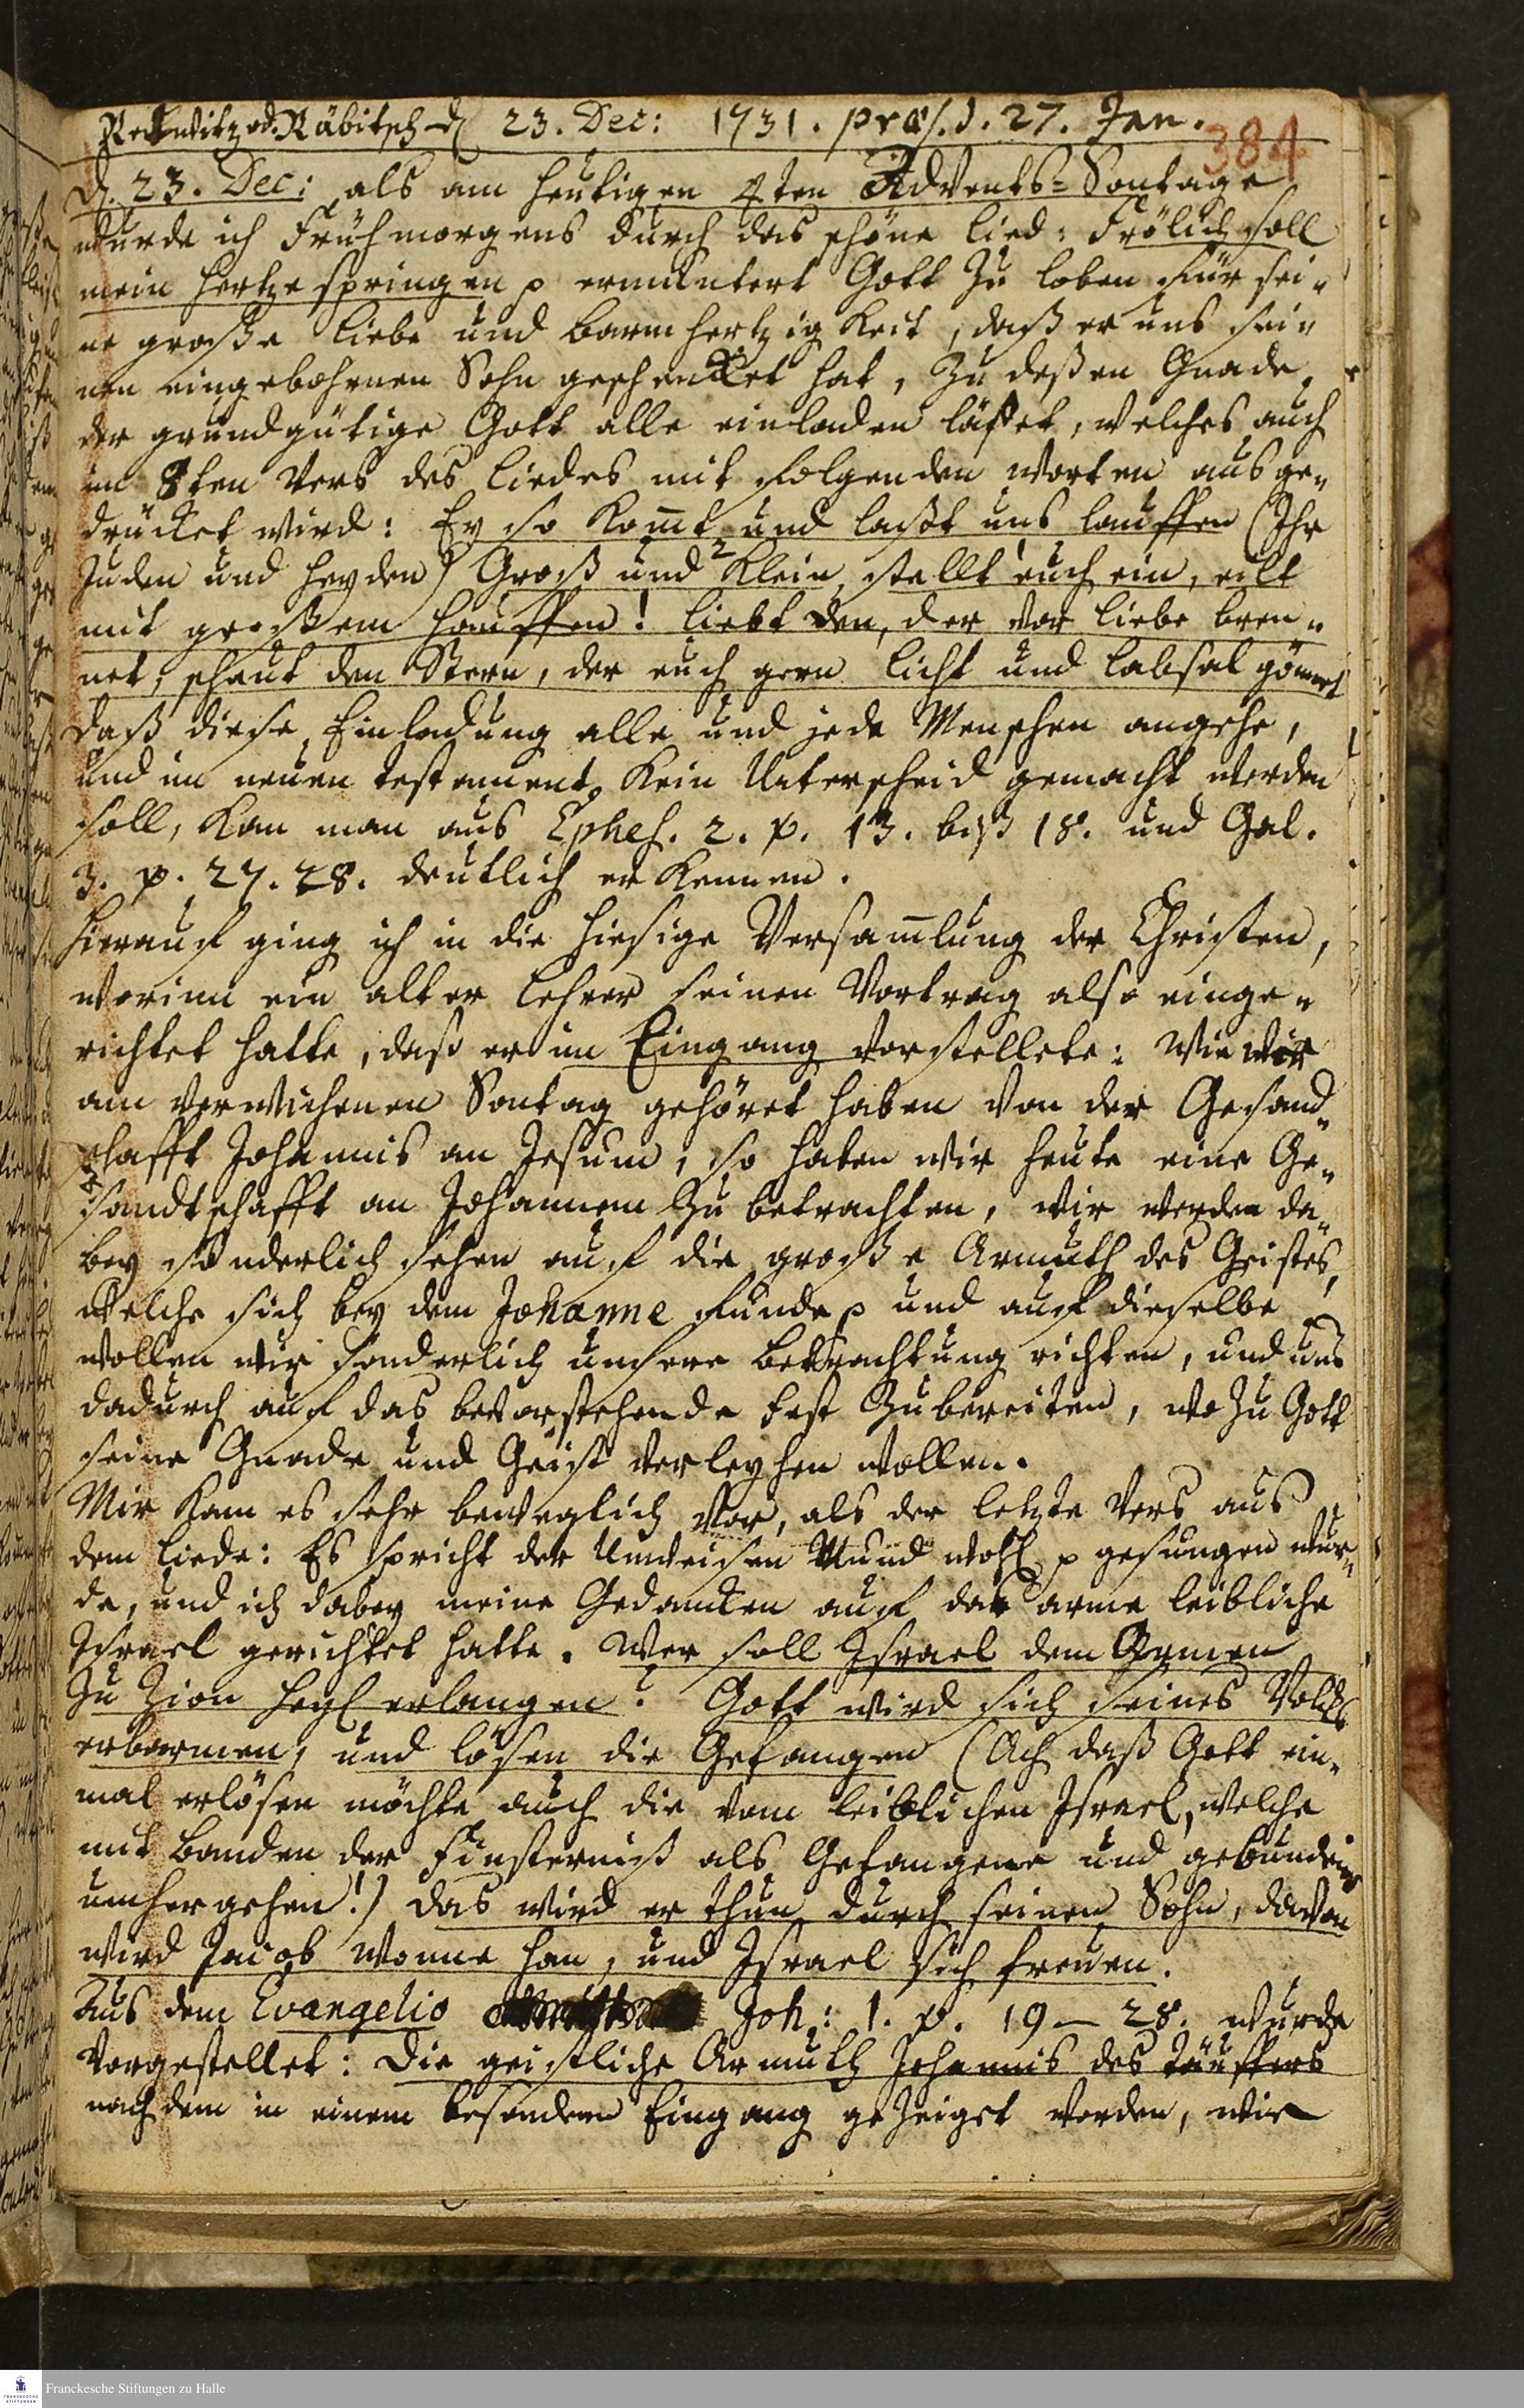 Reckwitz od. Räbitsch d 23. Dec: 1731. præs. d. 27. Jan.
384
D. 23. Dec: als am heutigen 4ten Advents-Sontage
wurde ich Frühmorgens durch das schöne Lied: Frölich soll
mein Hertze springen p ermuntert Gott zu loben für sei„
ne große Liebe und Barmhertzigkeit, daß er uns sei„
nen eingebohrnen Sohn geschencket hat, zu deßen Gnade
der grundgütige Gott alle einladen läßet, welches auch
im 8ten Vers des Liedes mit folgenden Worten ausge„
drücket wird: Ey so kom̅t und laßt uns lauffen (Ihr
Juden und Heyden) Groß und Klein, stellt euch ein, eilt
mit großem Hauffen! liebt den, der vor Liebe bren„
net, schaut den Stern, der euch gern Licht und Labsal gönnet
Daß diese Einladung alle und jede Menschen angehe,
und im neuen Testament kein Unterscheid gemacht werden
soll, kan man aus Ephes. 2. p. 13. biß 18. und Gal.
3. p. 27. 28. deutlich erkennen.
Hierauf ging ich in die hiesige Versam̅lung der Christen,
worinn ein alter Lehrer seinen Vortrag also einge„
richtet hatte, daß er im Eingang vorstellete: Wie wir
am verwichenen Sontag gehöret haben von der Gesand„
schafft Johannis an Jesum, so haben wir heute eine Ge„
sandtschafft an Johannem zu betrachten, wir werden da„
bey sonderlich sehen auf die große Armuth des Geistes,
welche sich bey dem Johanne funde p und auf dieselbe
wollen wir sonderlich unsere Betrachtung richten, und uns
dadurch auf das bevorstehende Fest zubereiten, wozu Gott
seine Gnade und Geist verleyhen wollen.
Mir kam es sehr beweglich vor, als der letzte Vers aus
dem Liede: Es spricht der Unweisen Mund wohl p gesungen wur„
de, und ich dabey meine Gedancken auf das arme leibliche
Israel gerichtet hatte. Wer soll Israel dem Armen
zu Zion Heyl erlangen? Gott wird sich seines Volcks
erbarmen, und lösen die Gefangen (Ach daß Gott ein„
mal erlösen möchte auch die vom leiblichen Israel, welche
mit Banden der Finsterniß als Gefangene und gebundene
umhergehen!) Das wird er thun durch seinen Sohn, davon
wird Jacob Wonne han, und Israel sich freuen.
Aus dem Evangelio Joh: 1. p. 19 — 28. wurde
vorgestellet: Die geistliche Armuth Johannis des Täuffers
nachdem in einem besondern Eingang gezeiget worden, wie
Franckesche Stiftungen zu Halle